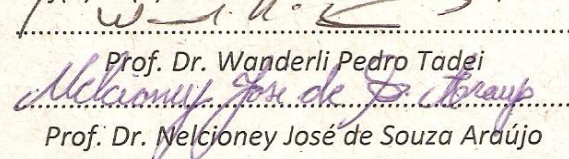 Prof. Dr. Wanderli Pedro Tadei
Nelcioney José de S. Araujo
Prof. Dr. Nelcioney José de Souza Araújo